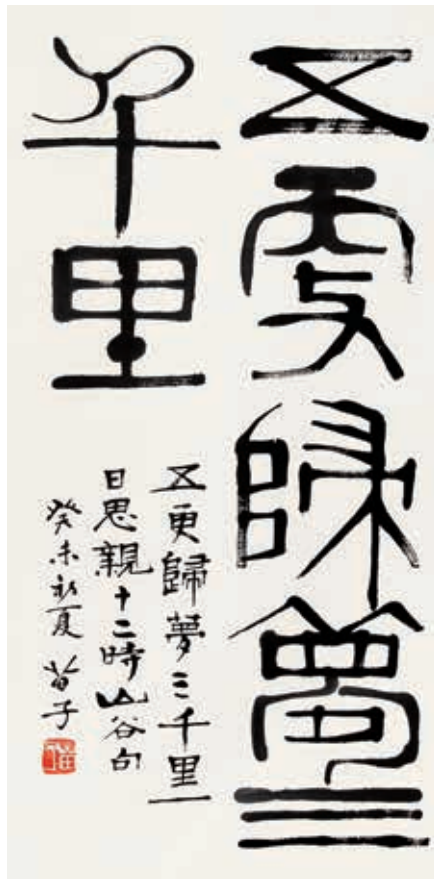 五更歸夢三
千里
五更歸夢三千里一
日思親十二時山谷句
癸未初夏苗子
苗